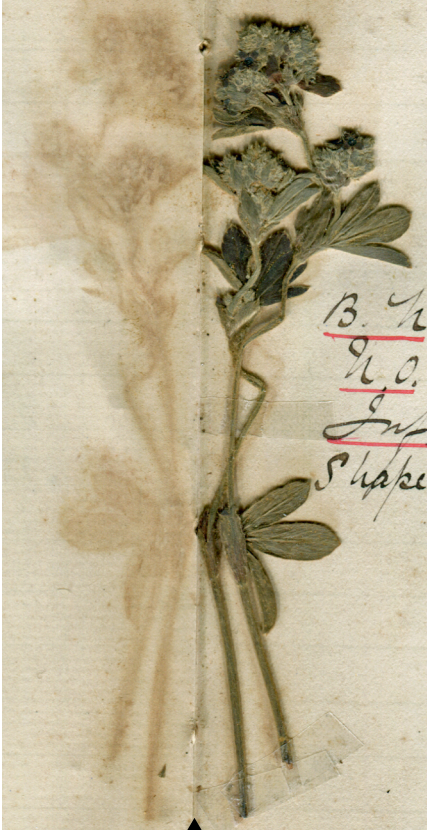 B. N
N.O.
Inf
Shape